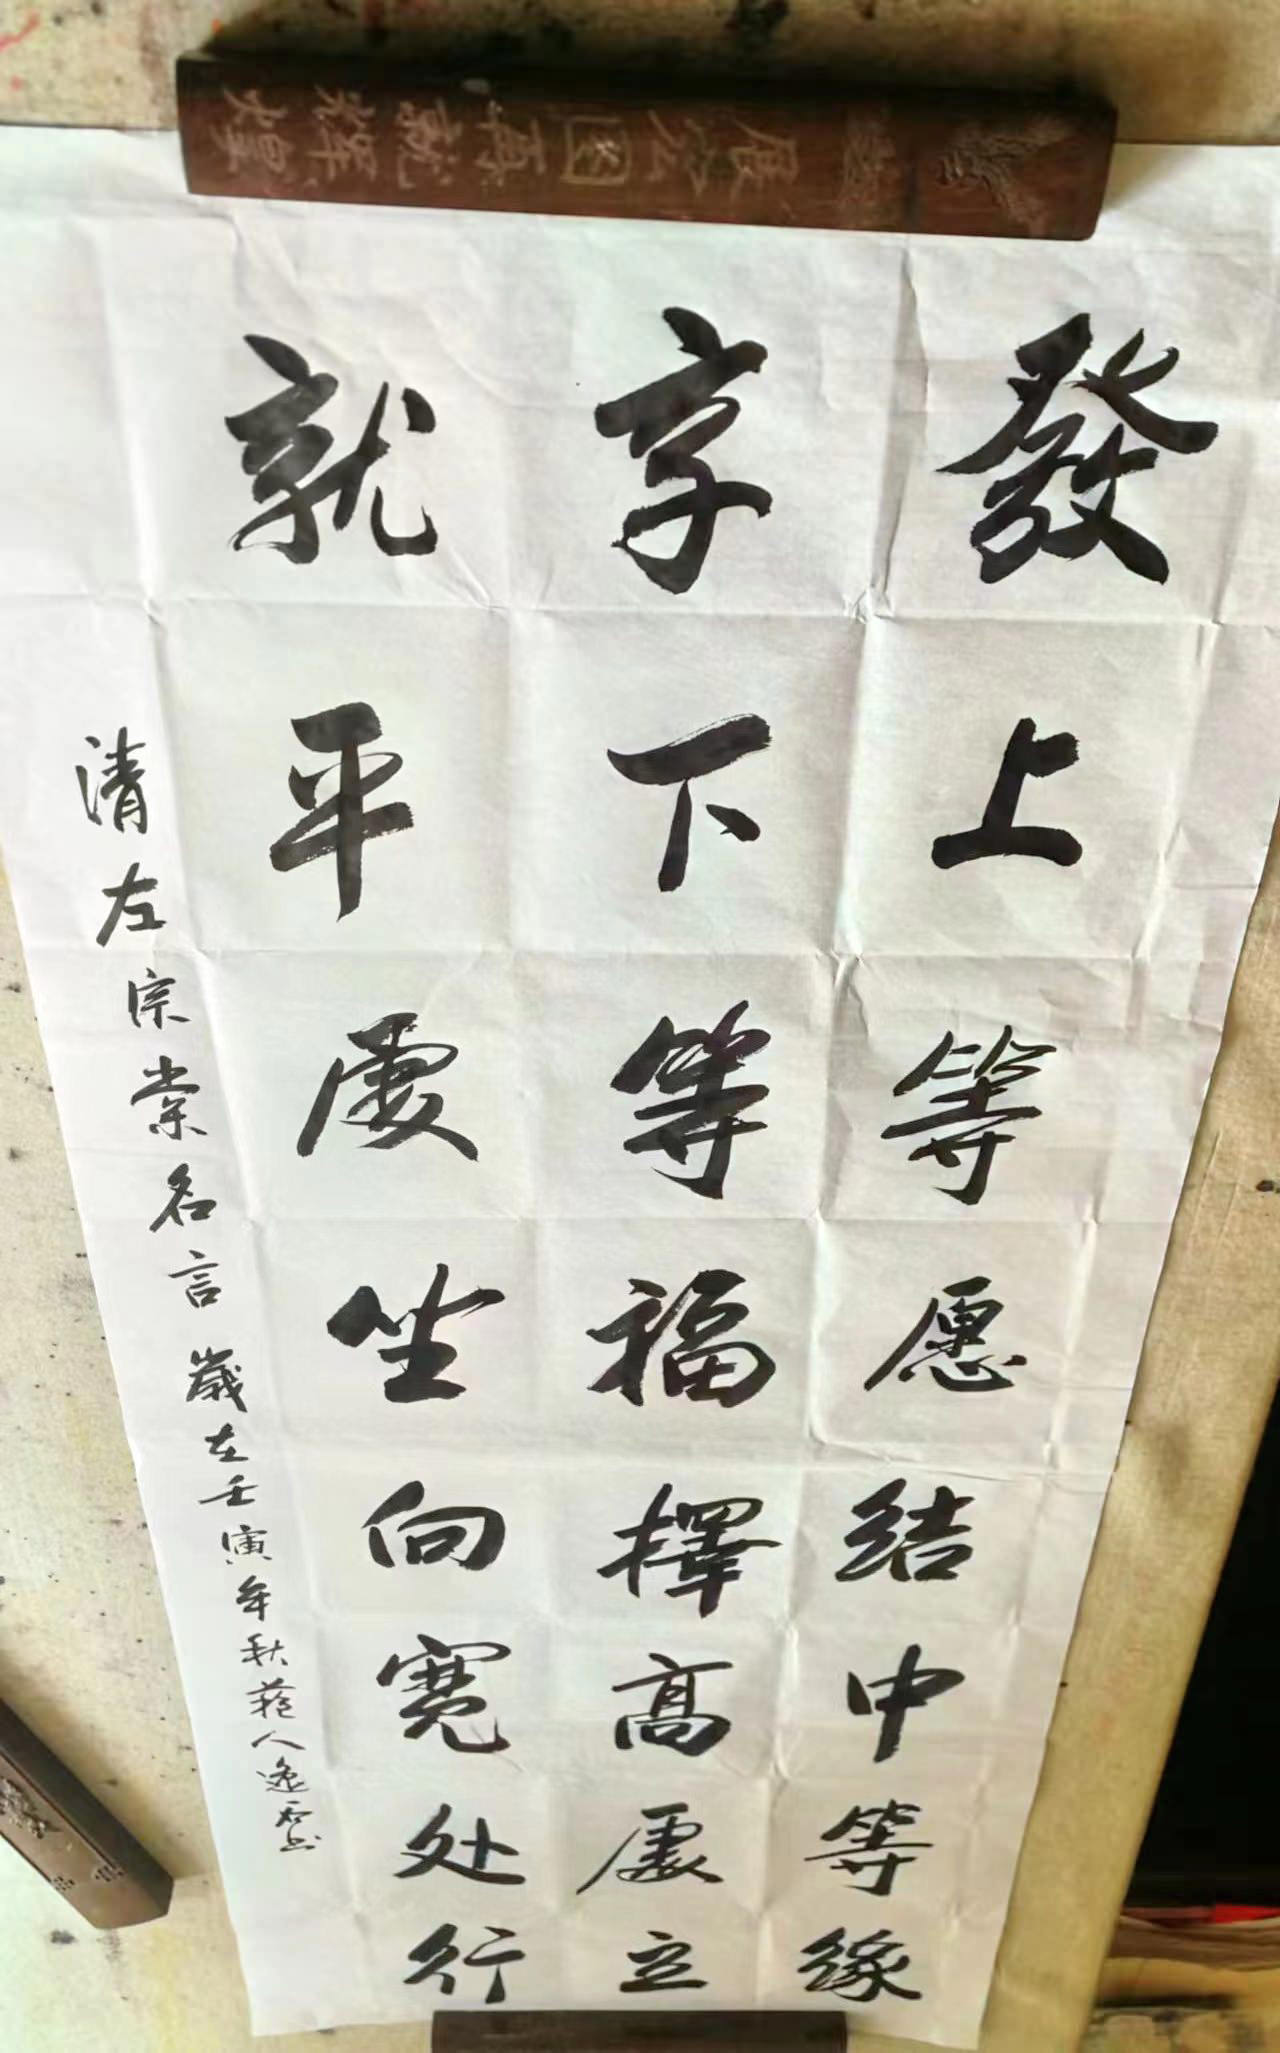 發上等愿结中等缘
享下等福擇高處立
就平處坐向宽处行
清左宗棠名言 歲在壬寅年秋蒼人逸云书